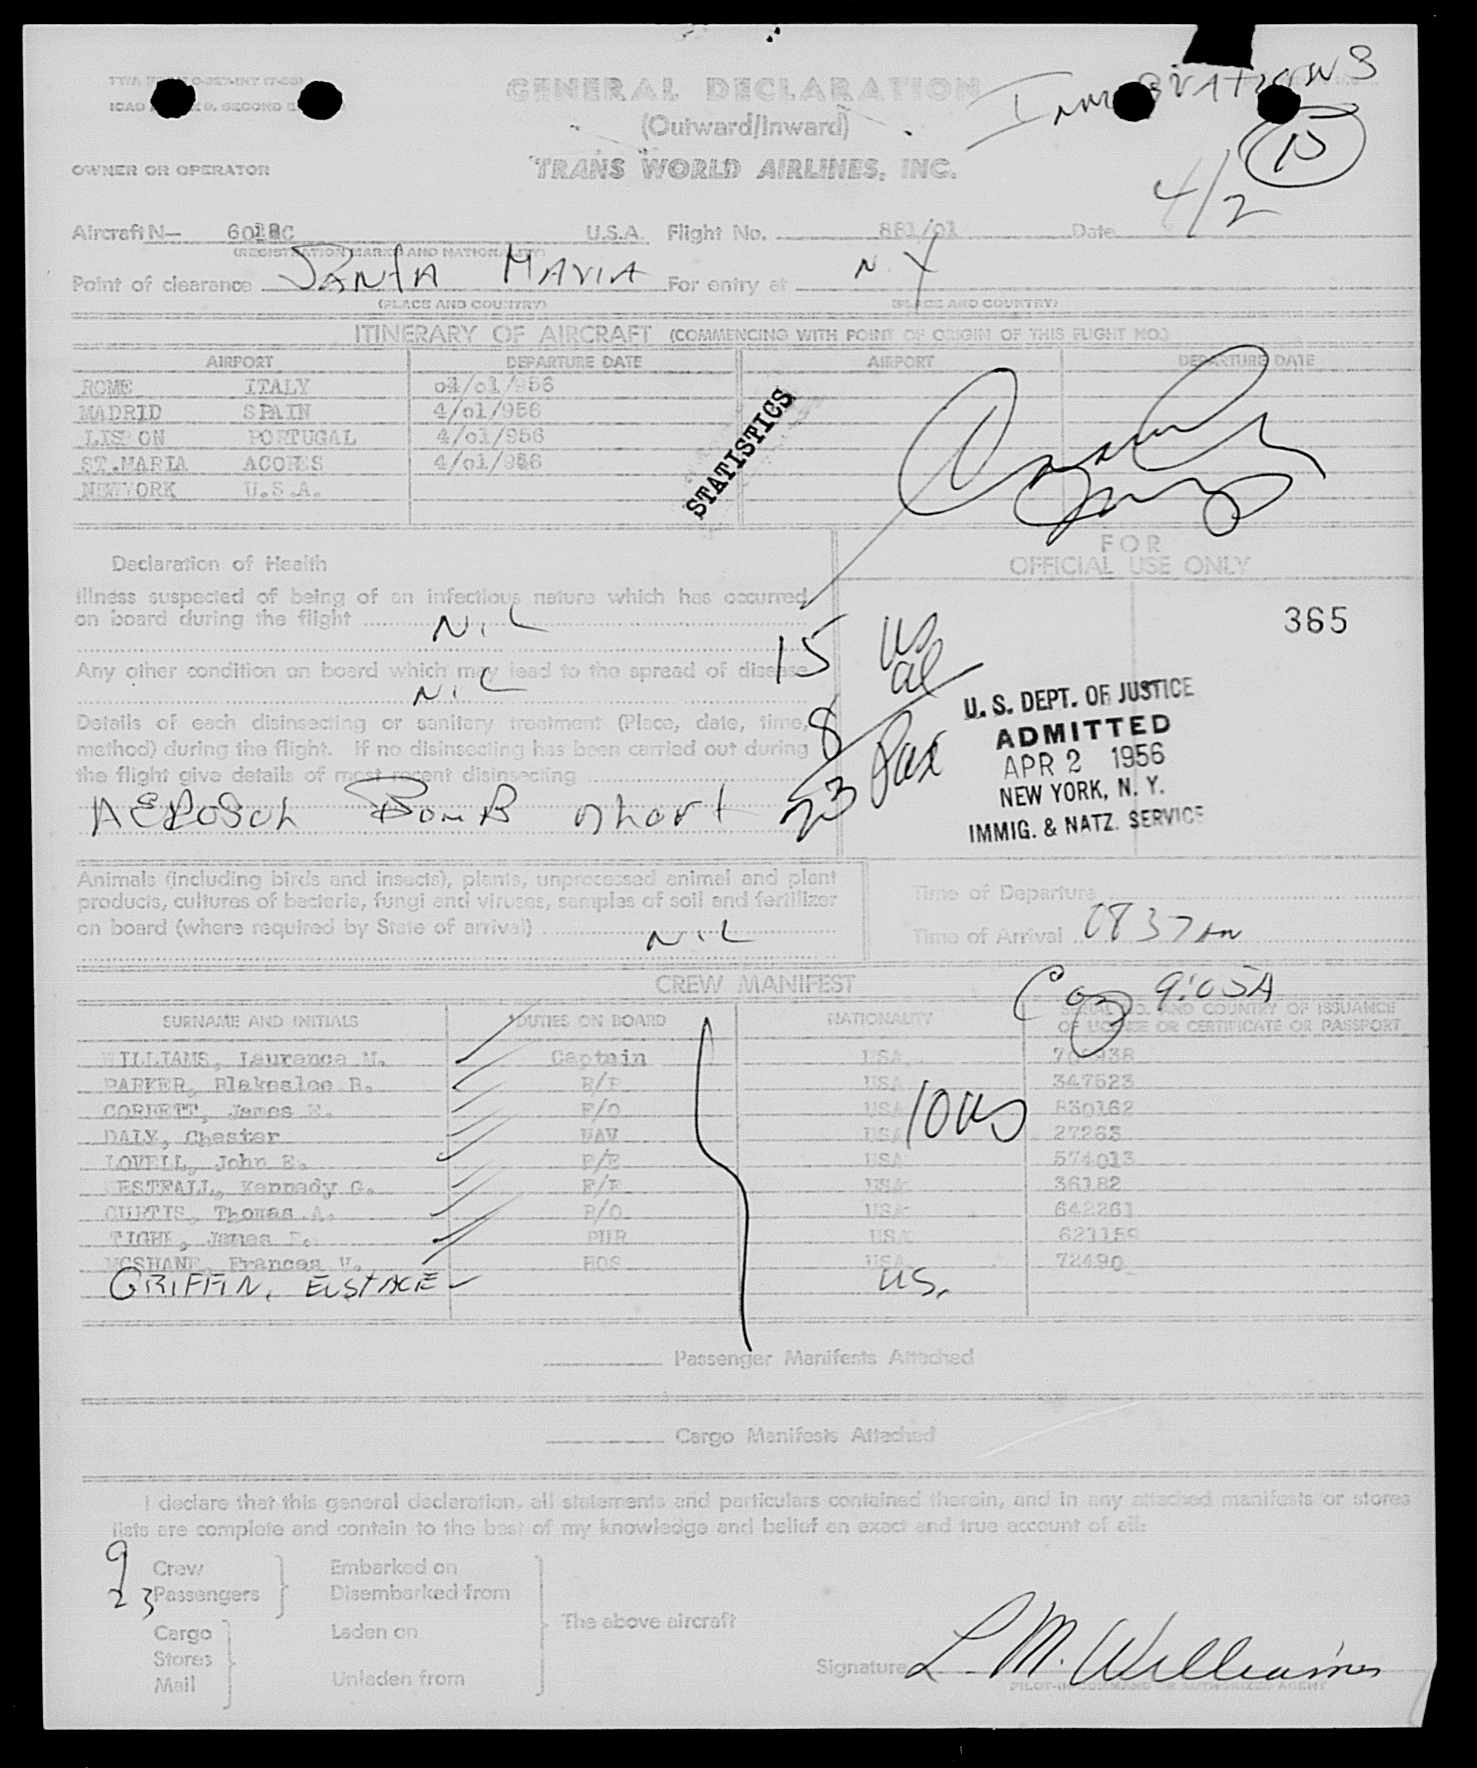 GENERAL DECLARATION
(Outward/Inward)
15
OWNER OR OPERATOR
TRANS WORLD AIRLINES, INC.
4/2
Aircraft N— U.S.A. Flight No. 881/01 Date
(REGISTRATION MARKS AND NATIONALITY)
Point of clearance SANTA MARIA For entry at N Y
(PLACE AND COUNTRY) (PLACE AND COUNTRY)
ITINERARY OF AIRCRAFT (COMMENCING WITH POINT OF ORIGIN OF THIS FLIGHT NO.)
AIRPORT DEPARTURE DATE AIRPORT DEPARTURE DATE
ROME ITALY /01/956
MADRID SPAIN 4/01/956
LISBON PORTUGAL 4/01/956
ST.MARIA ACORES 4/01/956
NEWYORK U.S.A.
STATISTICS
FOR
OFFICIAL USE ONLY
Declaration of Health
Illness suspected of being of an infectious nature which has occurred
on board during the flight NIL
365
Any other condition on board which may lead to the spread of disease
NIL
15 US
8 al
23 Pax
Details of each disinsecting or sanitary treatment (Place, date, time,
method) during the flight. If no disinsecting has been carried out during
the flight give details of most recent disinsecting
AEROSOL BOMB
U. S. DEPT. OF JUSTICE
ADMITTED
APR 2 1956
NEW YORK, N. Y.
IMMIG. & NATZ. SERVICE
Animals (including birds and insects), plants, unprocessed animal and plant
products, cultures of bacteria, fungi and viruses, samples of soil and fertilizer
on board (where required by State of arrival) NIL
Time of Departure
Time of Arrival 0837 Am
CREW MANIFEST
9:05A
SURNAME AND INITIALS *DUTIES ON BOARD NATIONALITY SERIAL NO. AND COUNTRY OF ISSUANCE
OF LICENSE OR CERTIFICATE OR PASSPORT
WILLIAMS, Laurence M. Captain USA
PARKER, Blakeslee B. USA 347623
CORBETT, James USA 830162
DALY, Chester NAV USA 27265
LOVELL, John E. USA 574013
WESTFALL, Kennedy G. F/E USA 36182
CURTIS, Thomas A. USA 642261
TIGHE, James PUR USA 621159
MCSHANE, Frances V. HOS USA 72490
GRIFFIN, EUSTACE US.
10 US
Passenger Manifests Attached
Cargo Manifests Attached
I declare that this general declaration, all statements and particulars contained therein, and in any attached manifests or stores
lists are complete and contain to the best of my knowledge and belief an exact and true account of all:
9 Crew Embarked on
23 Passengers Disembarked from
The above aircraft
Cargo Laden on
Stores
Mail Unladen from
Signature L. M. Williams
PILOT-IN COMMAND OR AUTHORIZED AGENT